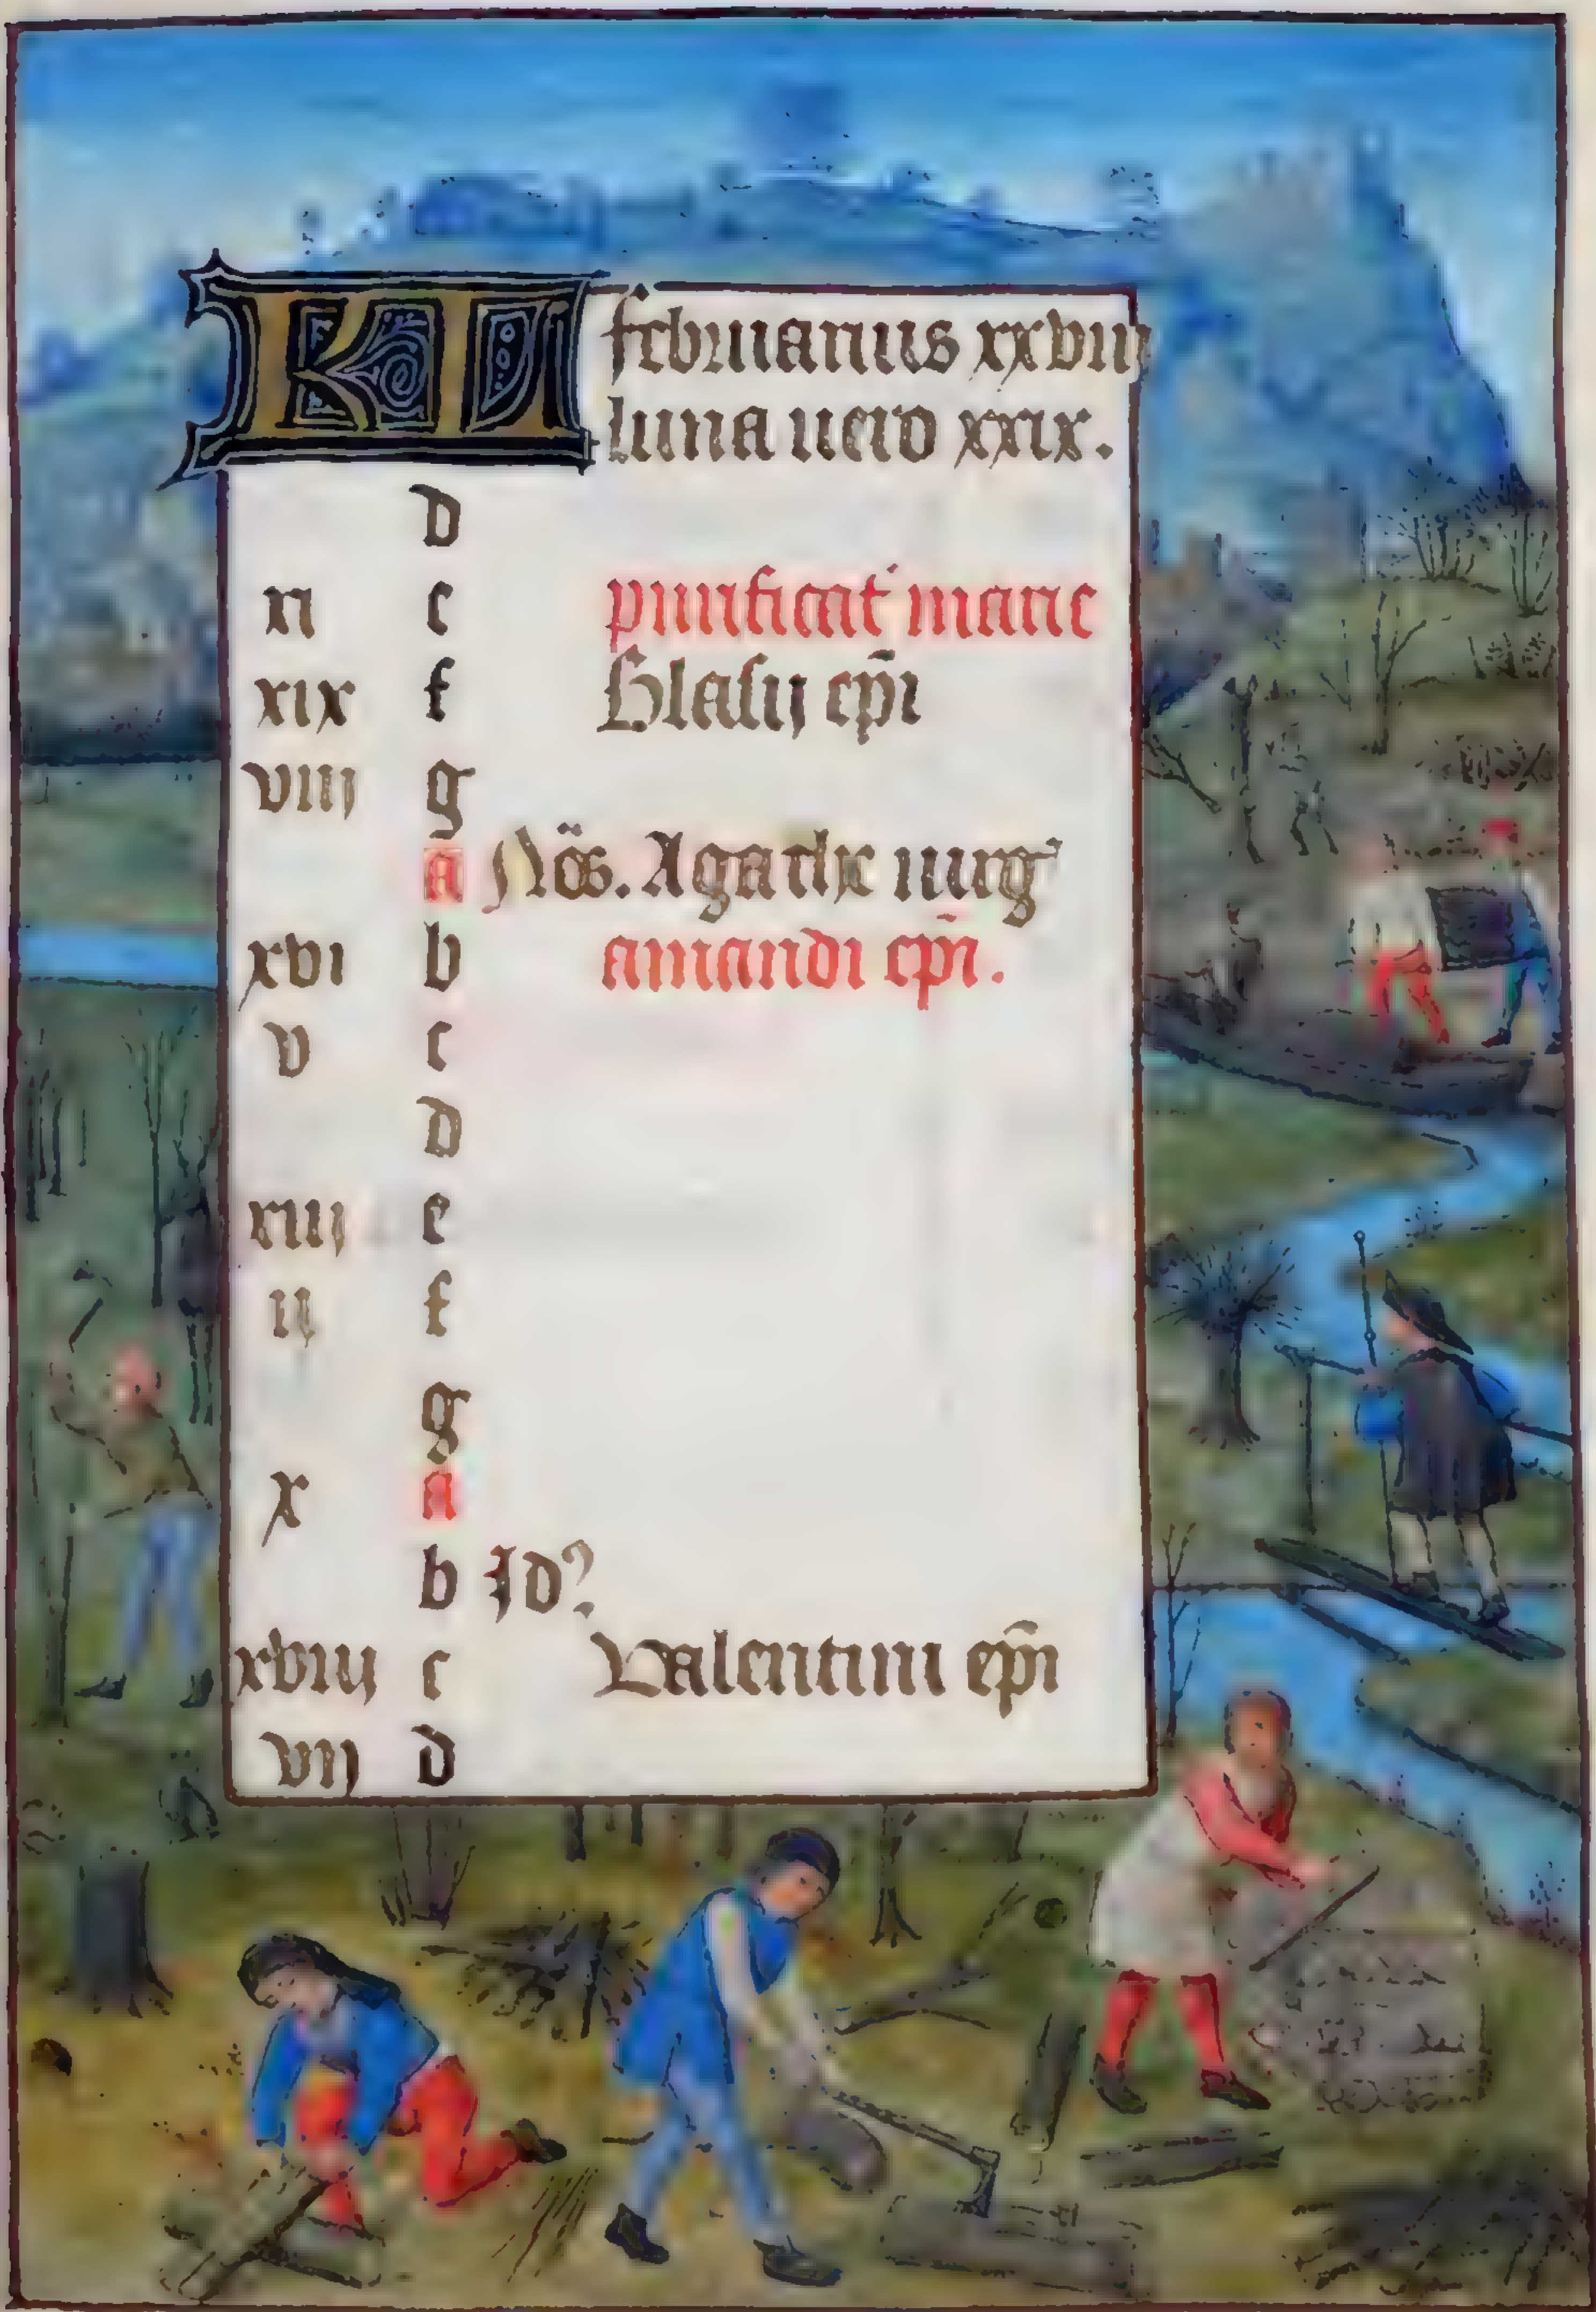 KL februarius xxviij
luna uero xxix.
d
xi e purificat marie
xix f Blasij epi
viij g
a Nos. Agathe uirg
xvi b amandi epi.
v c
d
xiij e
ij f
g
x a
b Id
xviij c Valentini epi
vij d